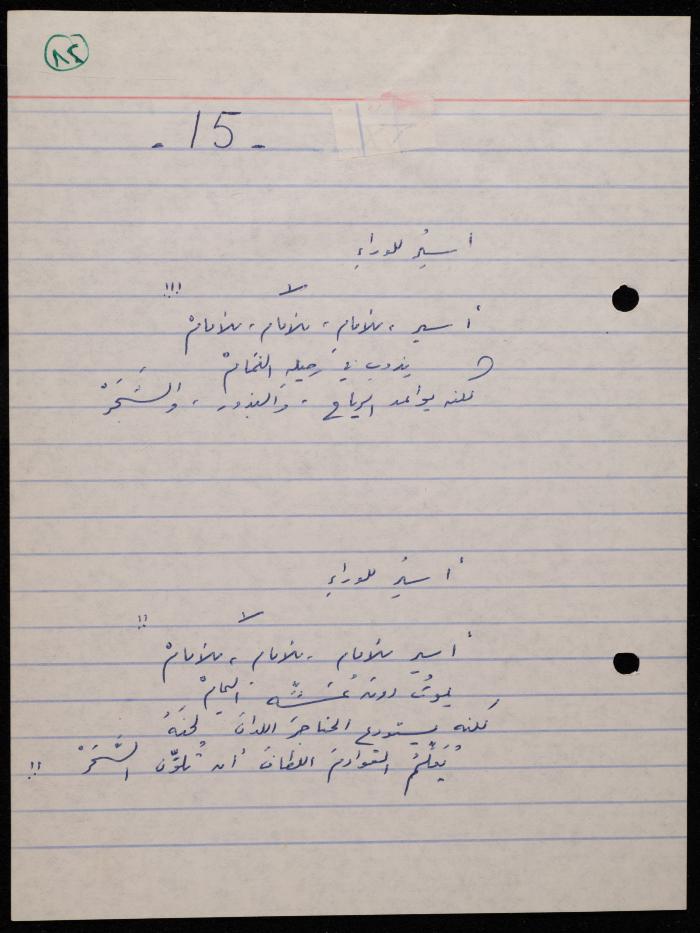 ٨٢
- 15 -
أسيرُ للوراءِ
لا !!!
أسير، للأمام، للأمام، للأمامْ
يذوب في رحيله الغمامْ
لكنه يواعد الرياح، والبذور، والشَّجَرْ
أسيرُ للوراءِ
لا !!
أسير للأمام، للأمام، للأمامْ
يموتُ دونَ عُشِّه اليمامْ
لكنه يستودع الحناجرَ اللدانَ لحنَهُ
يُعَلِّمُ القوادمَ اللطافَ أن تُلوِّن الشَّجَرْ !!